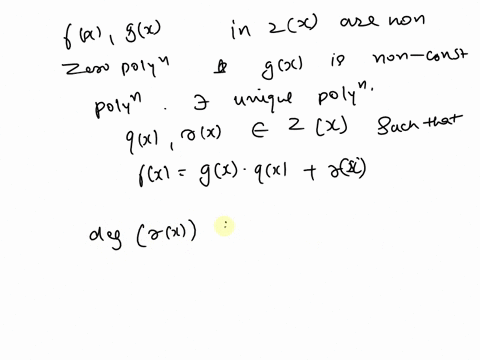 f(x), g(x) in Z(x) are non
Zero polyⁿ & g(x) is non-const
polyⁿ. ∃ unique polyⁿ.
q(x), r(x) ∈ Z(x) such that
f(x) = g(x) · q(x) + r(x)
deg (r(x)) :